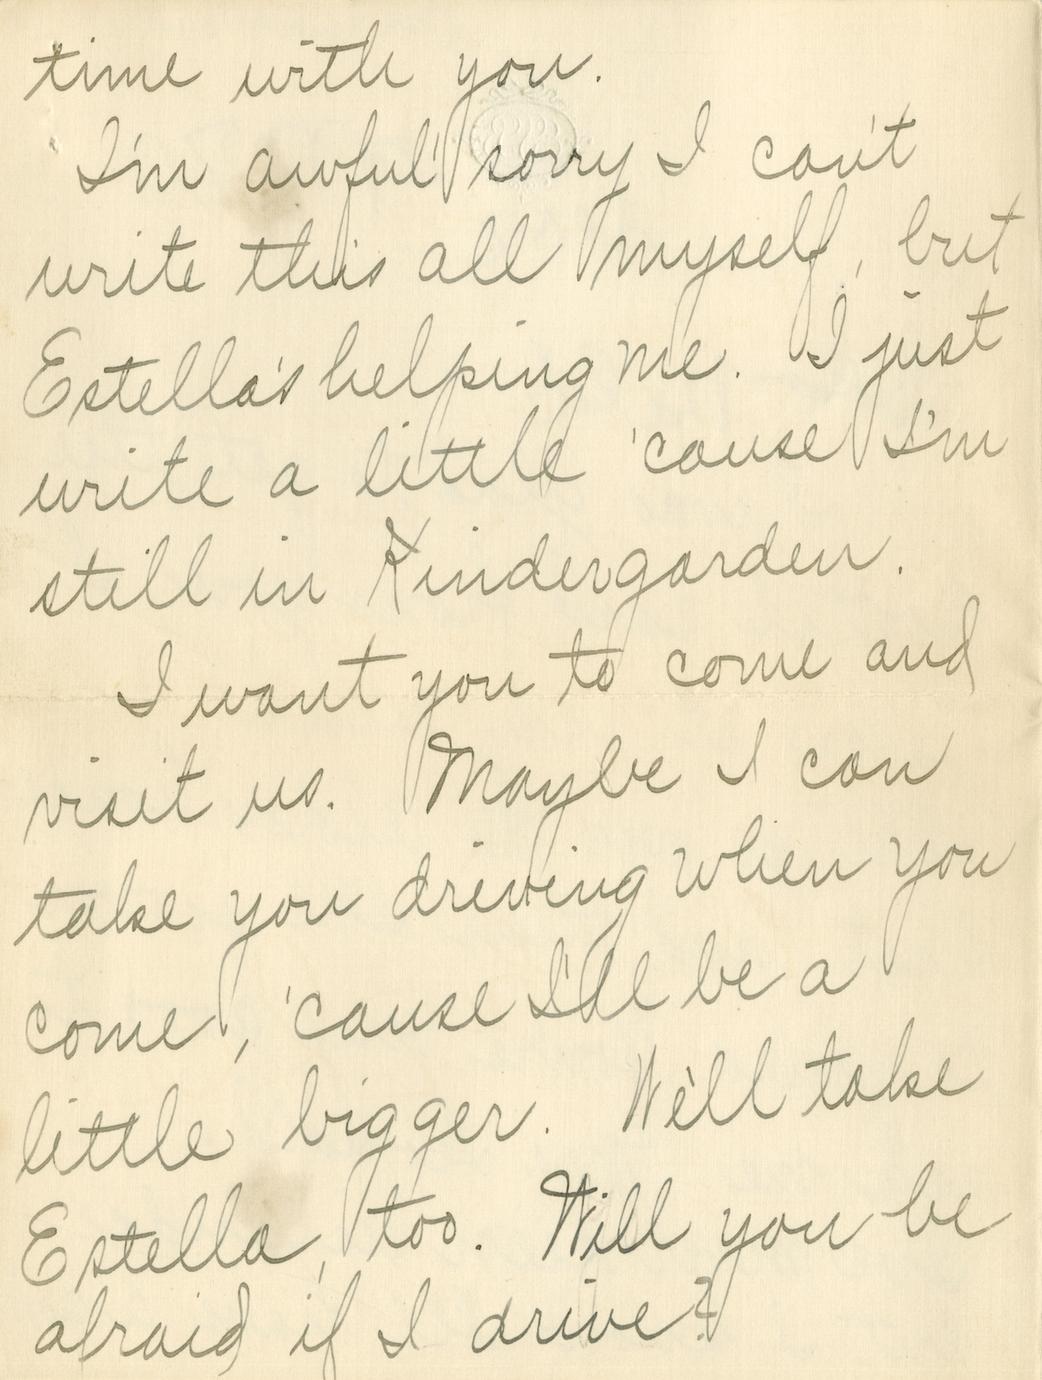 time with you.
I'm awful' sorry I can't
write this all myself, but
Estella's helping me. I just
write a little 'cause I'm
still in Kindergarden.
I want you to come and
visit us. Maybe I can
take you driving when you
come, 'cause I'll be a
little bigger. We'll take
Estella, too. Will you be
afraid if I drive?